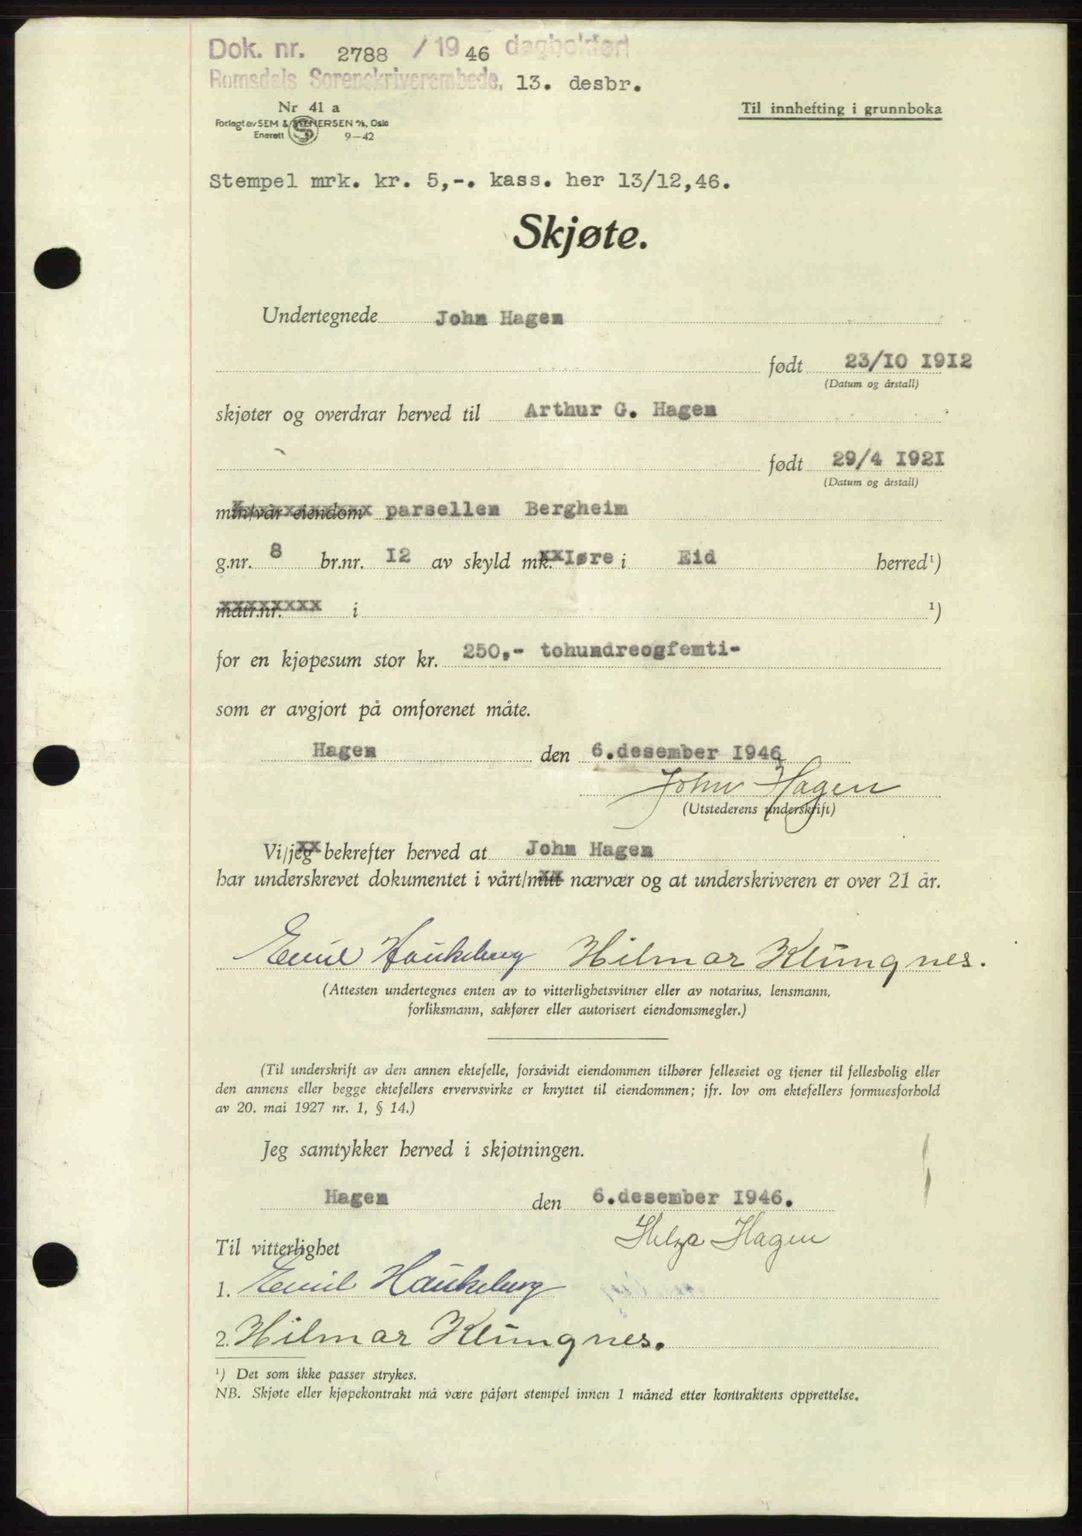 Dok. nr. 2788 / 19 46 dagbokført
Romsdals Sorenskriverembede, 13. desbr.
Nr 41 a
Til innhefting i grunnboka
Forlagt av SEM & STENERSEN A/S, Oslo
Enerett 9-42
Stempel mrk. kr. 5,-. kass. her 13/12,46.
Skjøte.
Undertegnede John Hagen
født 23/10 1912
(Datum og årstall)
skjøter og overdrar herved til Arthur G. Hagen
født 29/4 1921
(Datum og årstall)
min/vår eiendom parsellen Bergheim
g.nr. 8 br.nr. 12 av skyld mk. 1øre i Eid herred¹)
matr.nr. i ¹)
for en kjøpesum stor kr. 250,- tohundreogfemti-
som er avgjort på omforenet måte.
Hagen den 6.desember 1946
John Hagen
(Utstederens underskrift)
Vi/jeg bekrefter herved at John Hagen
har underskrevet dokumentet i vårt/mitt nærvær og at underskriveren er over 21 år.
Emil Haukeberg Hilmar Klungnes.
(Attesten undertegnes enten av to vitterlighetsvitner eller av notarius, lensmann,
forliksmann, sakfører eller autorisert eiendomsmegler.)
(Til underskrift av den annen ektefelle, forsåvidt eiendommen tilhører felleseiet og tjener til fellesbolig eller
den annens eller begge ektefellers ervervsvirke er knyttet til eiendommen; jfr. lov om ektefellers formuesforhold
av 20. mai 1927 nr. 1, § 14.)
Jeg samtykker herved i skjøtningen.
Hagen den 6.desember 1946.
Helga Hagen
Til vitterlighet
1. Emil Haukeberg
2. Hilmar Klungnes.
¹) Det som ikke passer strykes.
NB. Skjøte eller kjøpekontrakt må være påført stempel innen 1 måned etter kontraktens opprettelse.